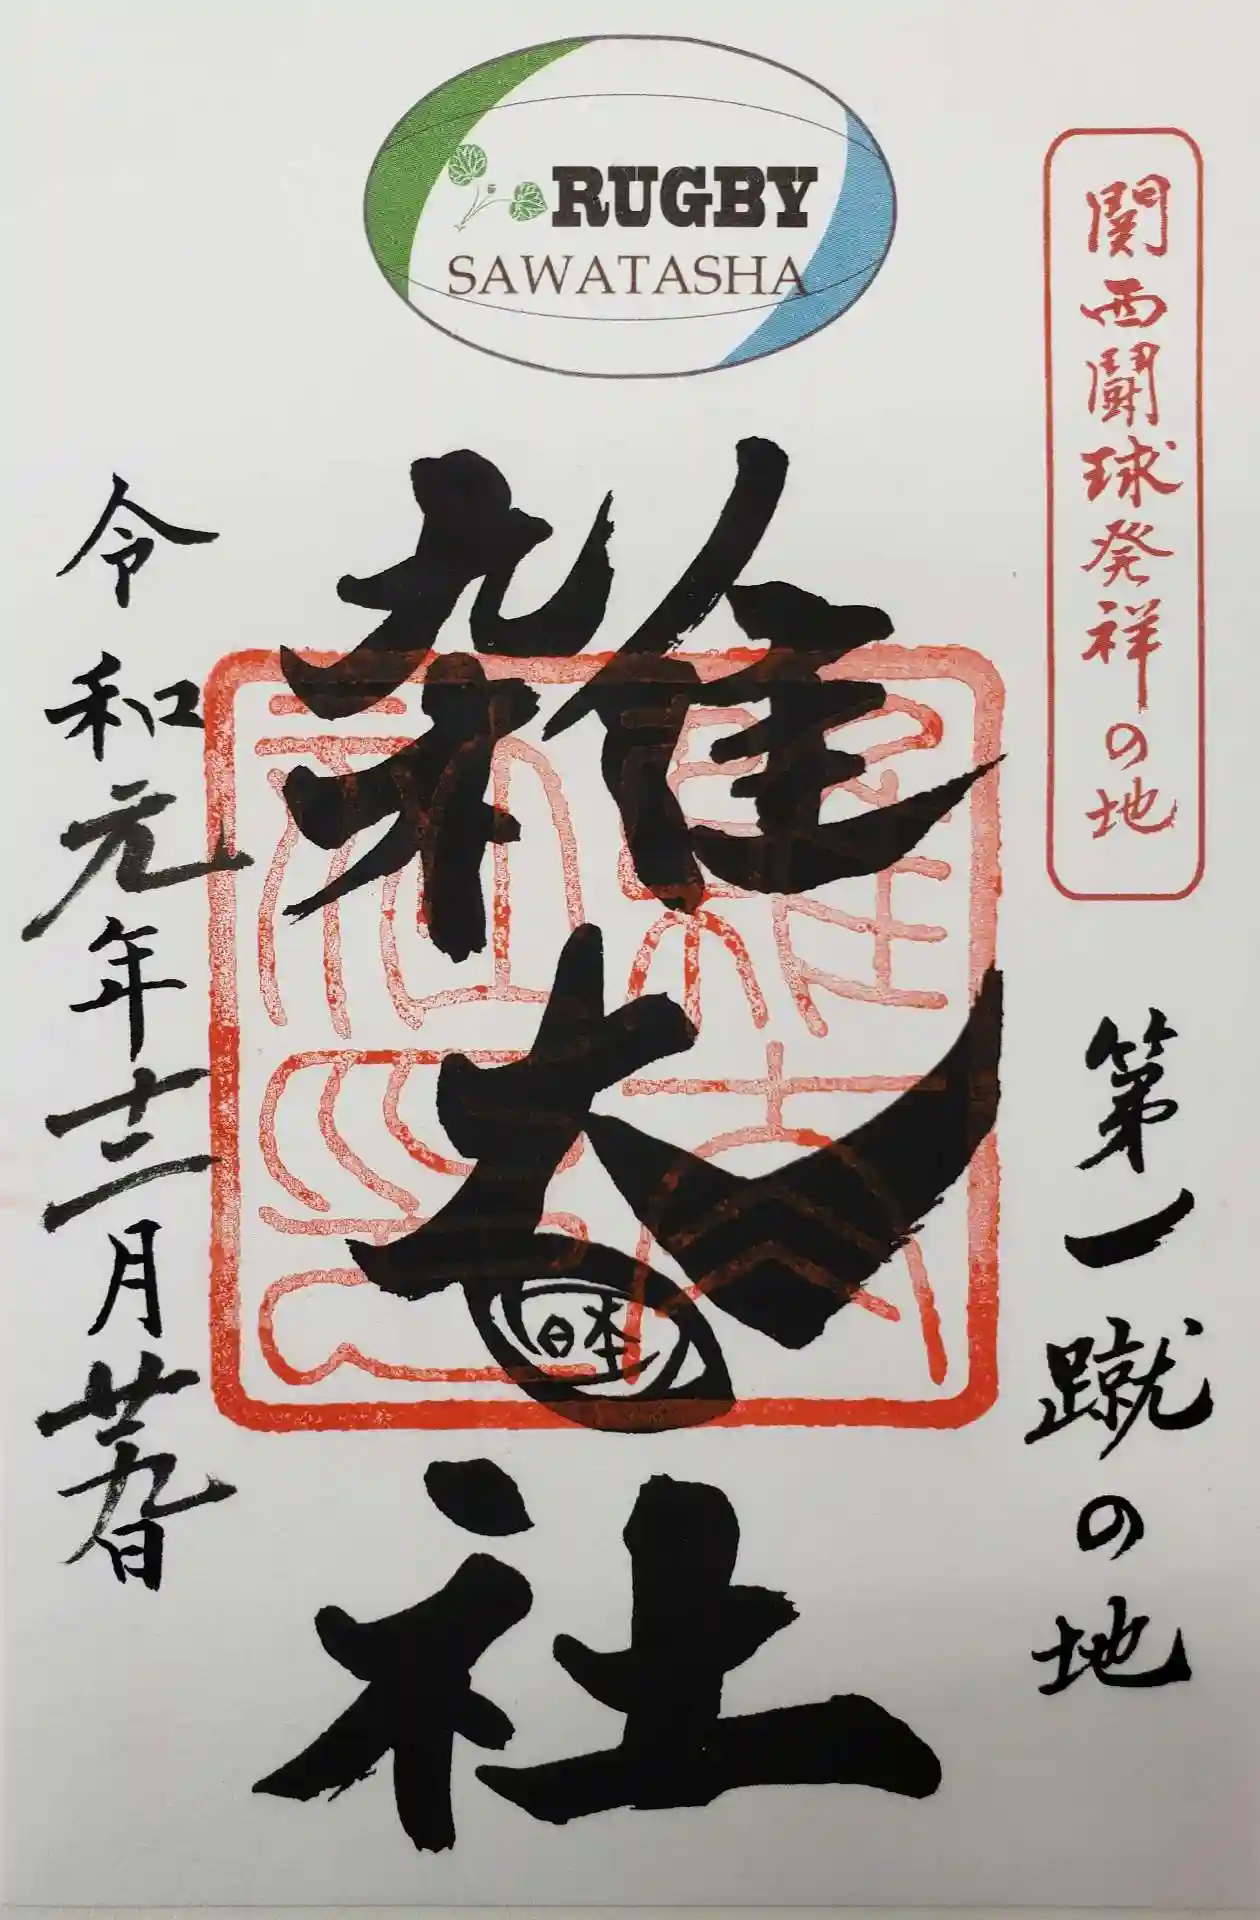 RUGBY
SAWATASHA
関西闘球発祥の地
第一蹴の地
雑太社
令和元年十二月廿九日